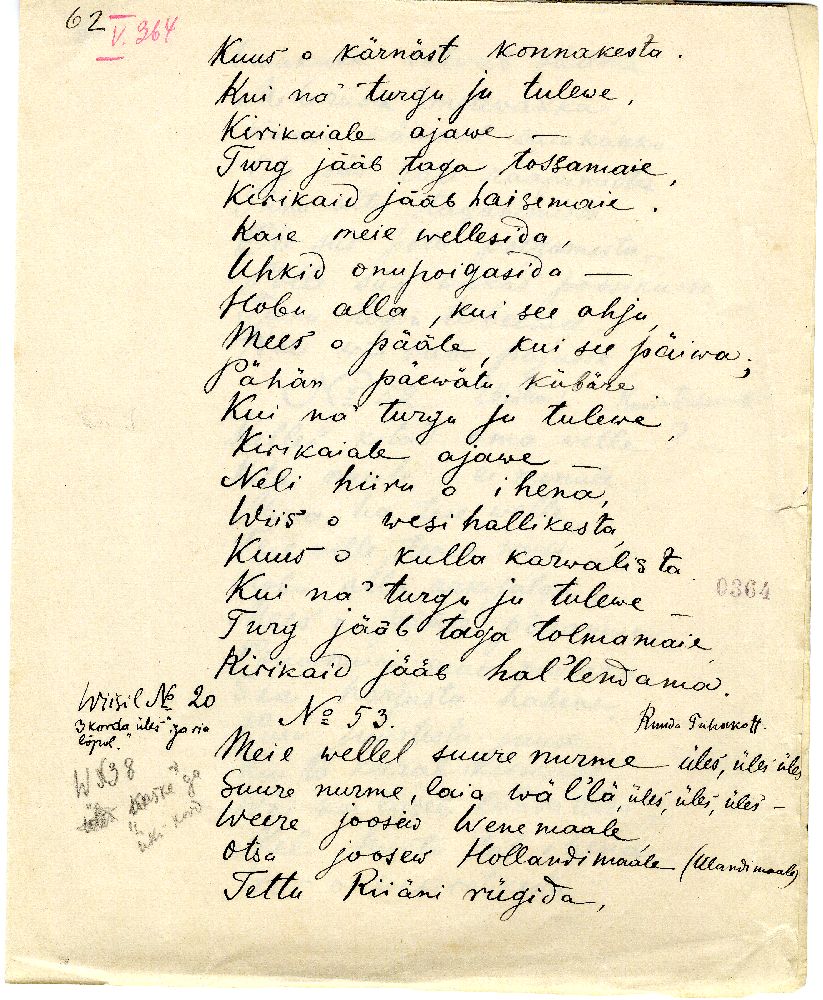 62
V. 364
Kuus o kärnäst konnakesta.
Kui na' turgu ju tulewe,
Kirikaiale ajawe —
Turg jääb taga tossamaie,
Kirikaid jääb haisemaie.
Kaie meie wellesida,
Uhkid onupoigasida —
Hobu alla, kui see ahju,
Mees o pääle, kui see päiwa;
Pähän päewätu kübäre
Kui na' turgu ju tulewe,
Kirikaiale ajawe —
Neli hiiru o ihena,
Wiis o wesihallikesta,
Kuus o kulla karwalista
0364
Kui na' turgu ju tulewe —
Turg jääb taga tolmamaie,
Kirikaid jääb hal'lendama.
Wiisil № 20
3 korda "üles" ga ria
lõpul."
№ 53.
Meie wellel suure nurme üles, üles üles
Suure nurme, laia wäl'lä, üles, üles, üles —
W № 38
"kaske" ga
üks kord
Weere joosew Wenemaale,
Otsa joosew Hollandimaale (Ulandimaale)
Tettu Riiäni rügida,